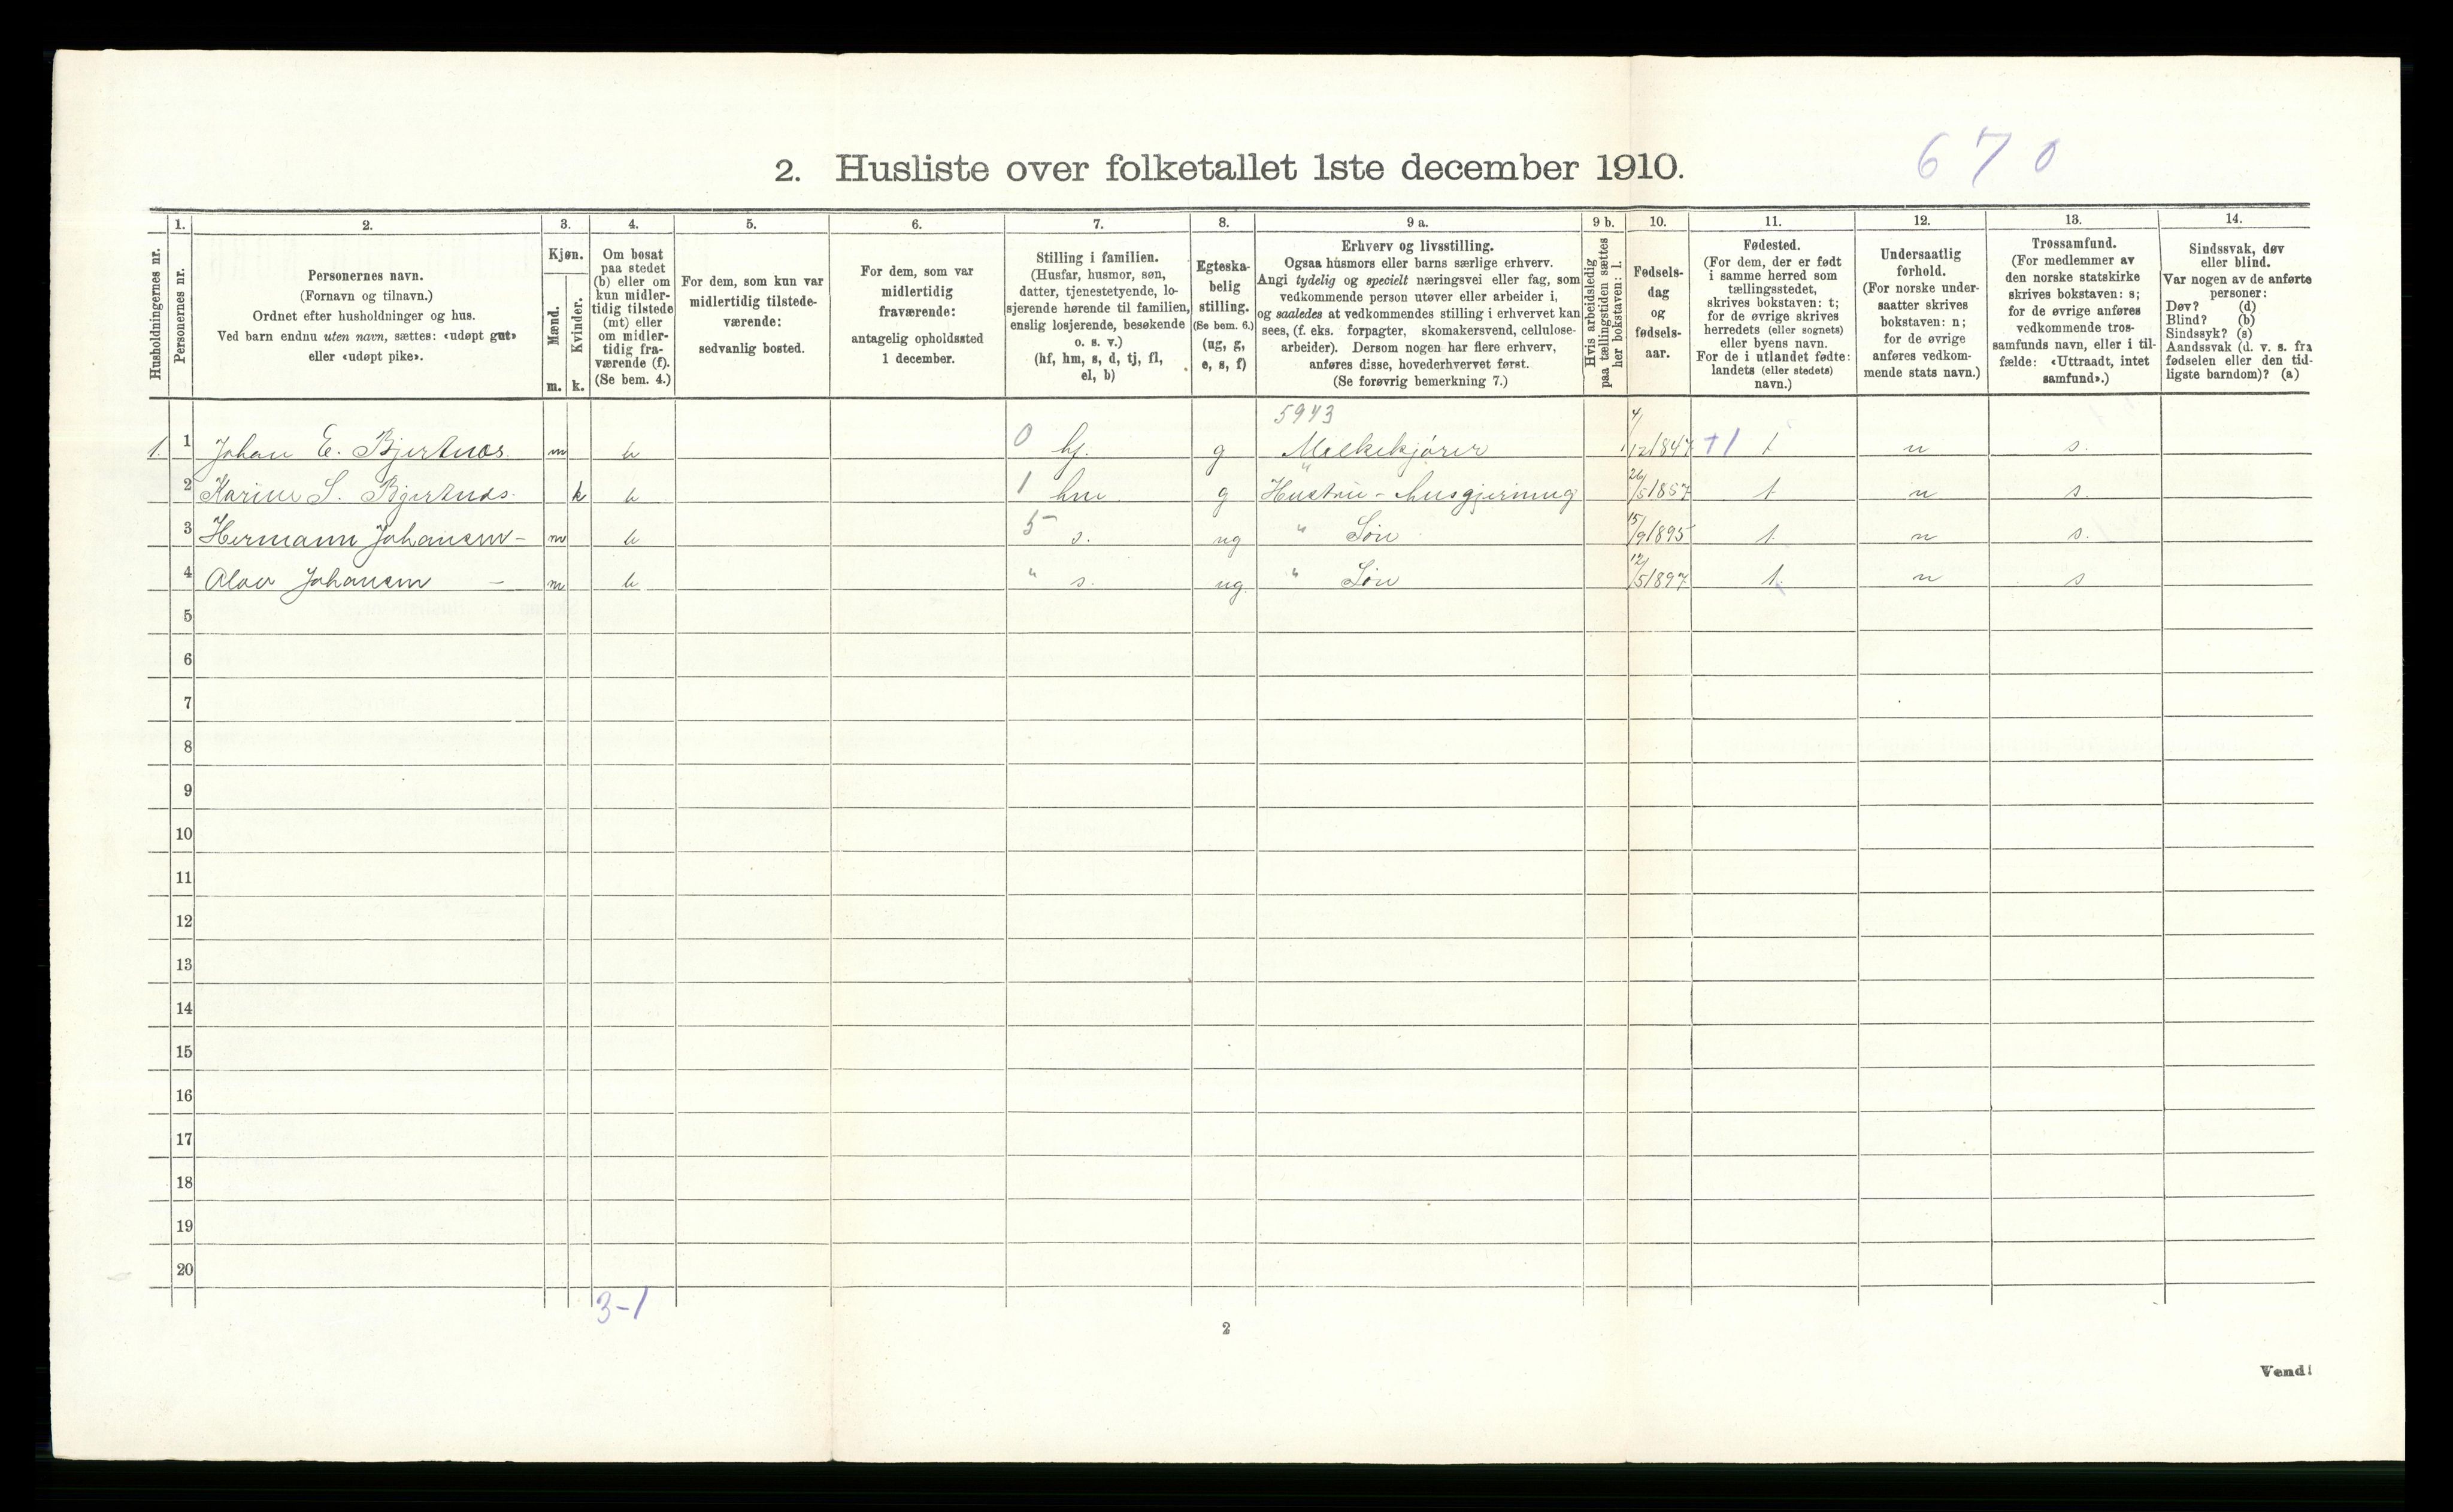 6 7 0
2. Husliste over folketallet 1ste december 1910.
Husholdningernes nr.
1. Personernes nr.
2. Personernes navn.
(Fornavn og tilnavn.)
Ordnet efter husholdninger og hus.
Ved barn endnu uten navn, sættes: «udøpt gut»
eller «udøpt pike».
3. Kjøn.
Mænd. m.
Kvinder. k.
4. Om bosat
paa stedet
(b) eller om
kun midler-
tidig tilstede
(mt) eller
om midler-
tidig fra-
værende (f).
(Se bem. 4.)
5. For dem, som kun var
midlertidig tilstede-
værende:
sedvanlig bosted.
6. For dem, som var
midlertidig
fraværende:
antagelig opholdssted
1 december.
7. Stilling i familien.
(Husfar, husmor, søn,
datter, tjenestetyende, lo-
sjerende hørende til familien,
enslig losjerende, besøkende
o. s. v.)
(hf, hm, s, d, tj, fl,
el, b)
8. Egteska-
belig
stilling.
(Se bem. 6.)
(ug, g,
e, s, f)
9 a. Erhverv og livsstilling.
Ogsaa husmors eller barns særlige erhverv.
Angi tydelig og specielt næringsvei eller fag, som
vedkommende person utøver eller arbeider i,
og saaledes at vedkommendes stilling i erhvervet kan
sees, (f. eks. forpagter, skomakersvend, cellulose-
arbeider). Dersom nogen har flere erhverv,
anføres disse, hovederhvervet først.
(Se forøvrig bemerkning 7.)
9 b. Hvis arbeidsledig
paa tællingstiden sættes
her bokstaven: l.
10. Fødsels-
dag
og
fødsels-
aar.
11. Fødested.
(For dem, der er født
i samme herred som
tællingsstedet,
skrives bokstaven: t;
for de øvrige skrives
herredets (eller sognets)
eller byens navn.
For de i utlandet fødte:
landets (eller stedets)
navn.)
12. Undersaatlig
forhold.
(For norske under-
saatter skrives
bokstaven: n;
for de øvrige
anføres vedkom-
mende stats navn.)
13. Trossamfund.
(For medlemmer av
den norske statskirke
skrives bokstaven: s;
for de øvrige anføres
vedkommende tros-
samfunds navn, eller i til-
fælde: «Uttraadt, intet
samfund».)
14. Sindssvak, døv
eller blind.
Var nogen av de anførte
personer:
Døv? (d)
Blind? (b)
Sindssyk? (s)
Aandssvak (d. v. s. fra
fødselen eller den tid-
ligste barndom)? (a)
5943
1. 1 Johan E. Bjertnæs. m b 0 hf. g Melkekjører 4/12 1847 +1 t n s.
2 Karine S. Bjertnæs. k b 1 hm. g " Hustru - husgjerning 26/5 1857 t n s.
3 Hermann Johansen - m b 5 s. ug " Søn 15/9 1895 t n s.
4 Olav Johansen - m b " s. ug. " Søn 12/5 1897 t. n s
5
6
7
8
9
10
11
12
13
14
15
16
17
18
19
20
3-1
2
Vend!